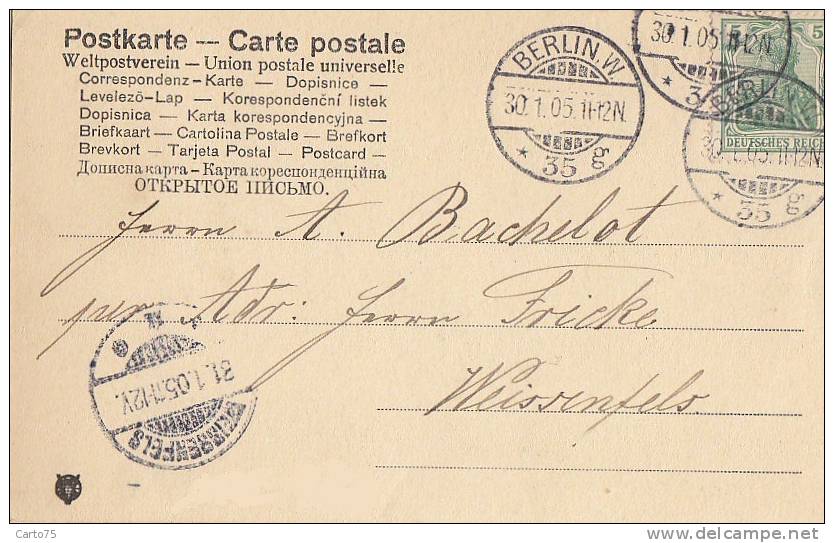 Postkarte — Carte postale
Weltpostverein — Union postale universelle
Correspondenz-Karte — Dopisnice —
Levelezö-Lap — Korespondenční listek
Dopisnica — Karta korespondencyjna —
Briefkaart — Cartolina Postale — Brefkort
Brevkort — Tarjeta Postal — Postcard —
Дописна карта - Карта кореспонденційна
ОТКРЫТОЕ ПИСЬМО.
BERLIN. W.
30.1.05.11-12N.
* 35 g
30.1.05.11-12N.
* 3
5
DEUTSCHES REICH
BERLIN
30.1.05.11-12N.
* 35 g
Herrn A. Bachelot
per Adr: Herrn Fricke
Weissenfels.
31.1.05.11-12V.
WEISSENFELS
Carto75
http://www.delcampe.net